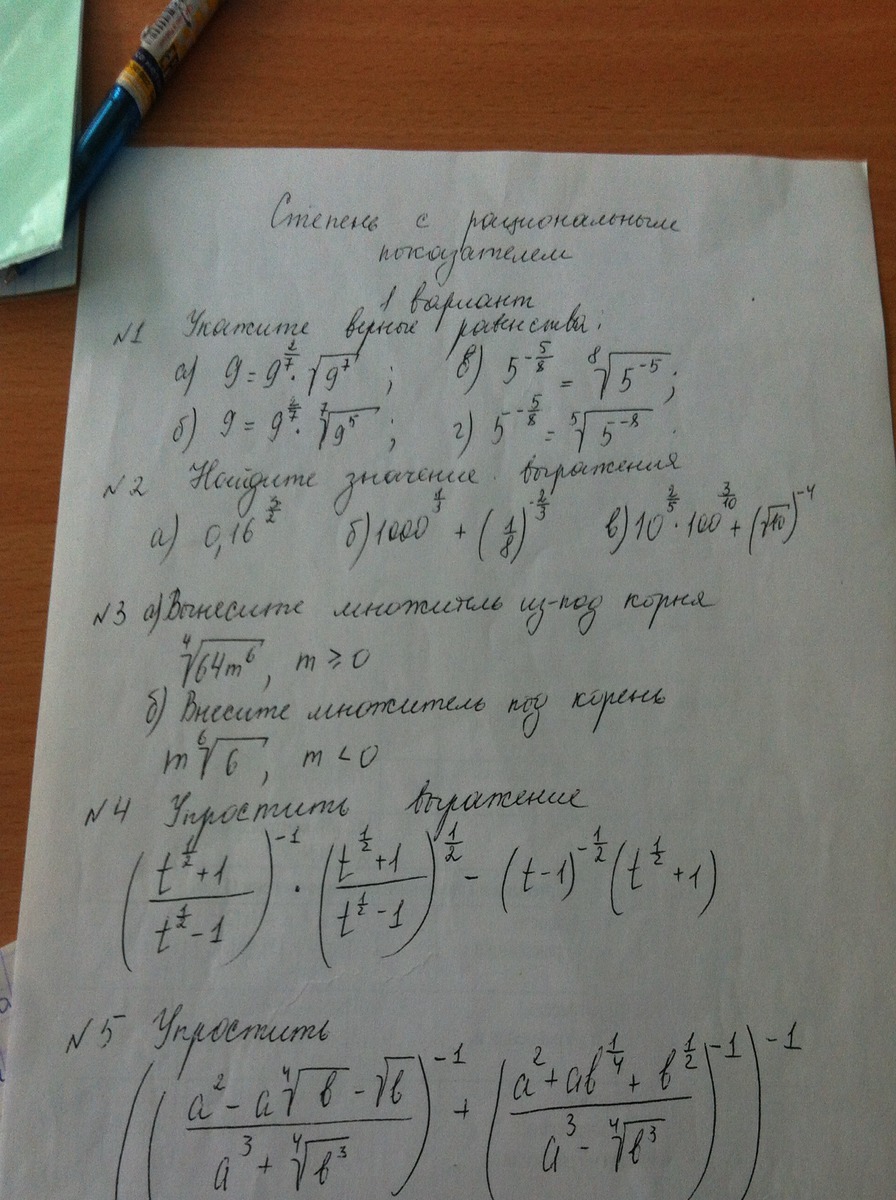 Степень с рациональным
показателем
1 вариант
№1 Укажите верные равенства:
а) 9 = 9^{2/7} · √(9^7) ; в) 5^{-5/8} = ⁸√(5^{-5}) ;
б) 9 = 9^{2/7} · ⁷√(9^5) ; г) 5^{-5/8} = ⁵√(5^{-8}) .
№2 Найдите значение выражения
а) 0,16^{3/2} б) 1000^{1/3} + (1/8)^{-2/3} в) 10^{2/5} · 100^{3/10} + (√10)^{-4}
№3 а) Вынесите множитель из-под корня
⁴√(64m^6), m ≥ 0
б) Внесите множитель под корень
m ⁶√6, m < 0
№4 Упростить выражение
((t^{1/2}+1)/(t^{1/2}-1))^{-1} · ((t^{1/2}+1)/(t^{1/2}-1))^{1/2} - (t-1)^{-1/2} (t^{1/2}+1)
№5 Упростить
(((a^2 - a ⁴√в - √в)/(a^3 + ⁴√(в^3)))^{-1} + ((a^2 + aв^{1/4} + в^{1/2})/(a^3 - ⁴√(в^3)))^{-1})^{-1}